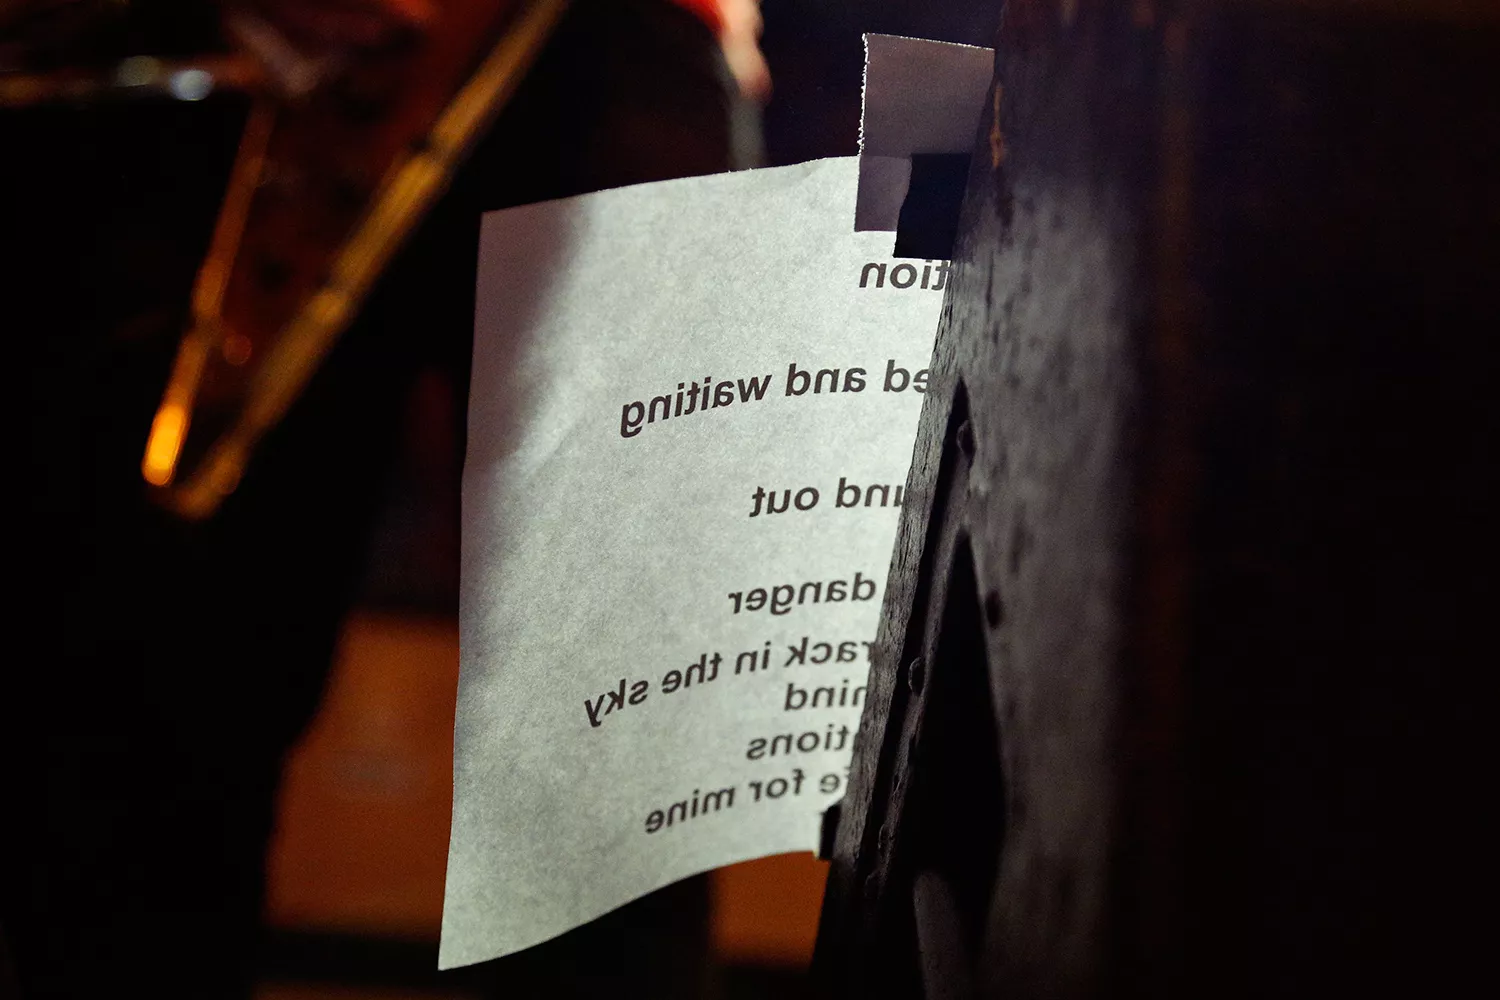 tion
ed and waiting
und out
danger
rack in the sky
ind
tions
fe for mine